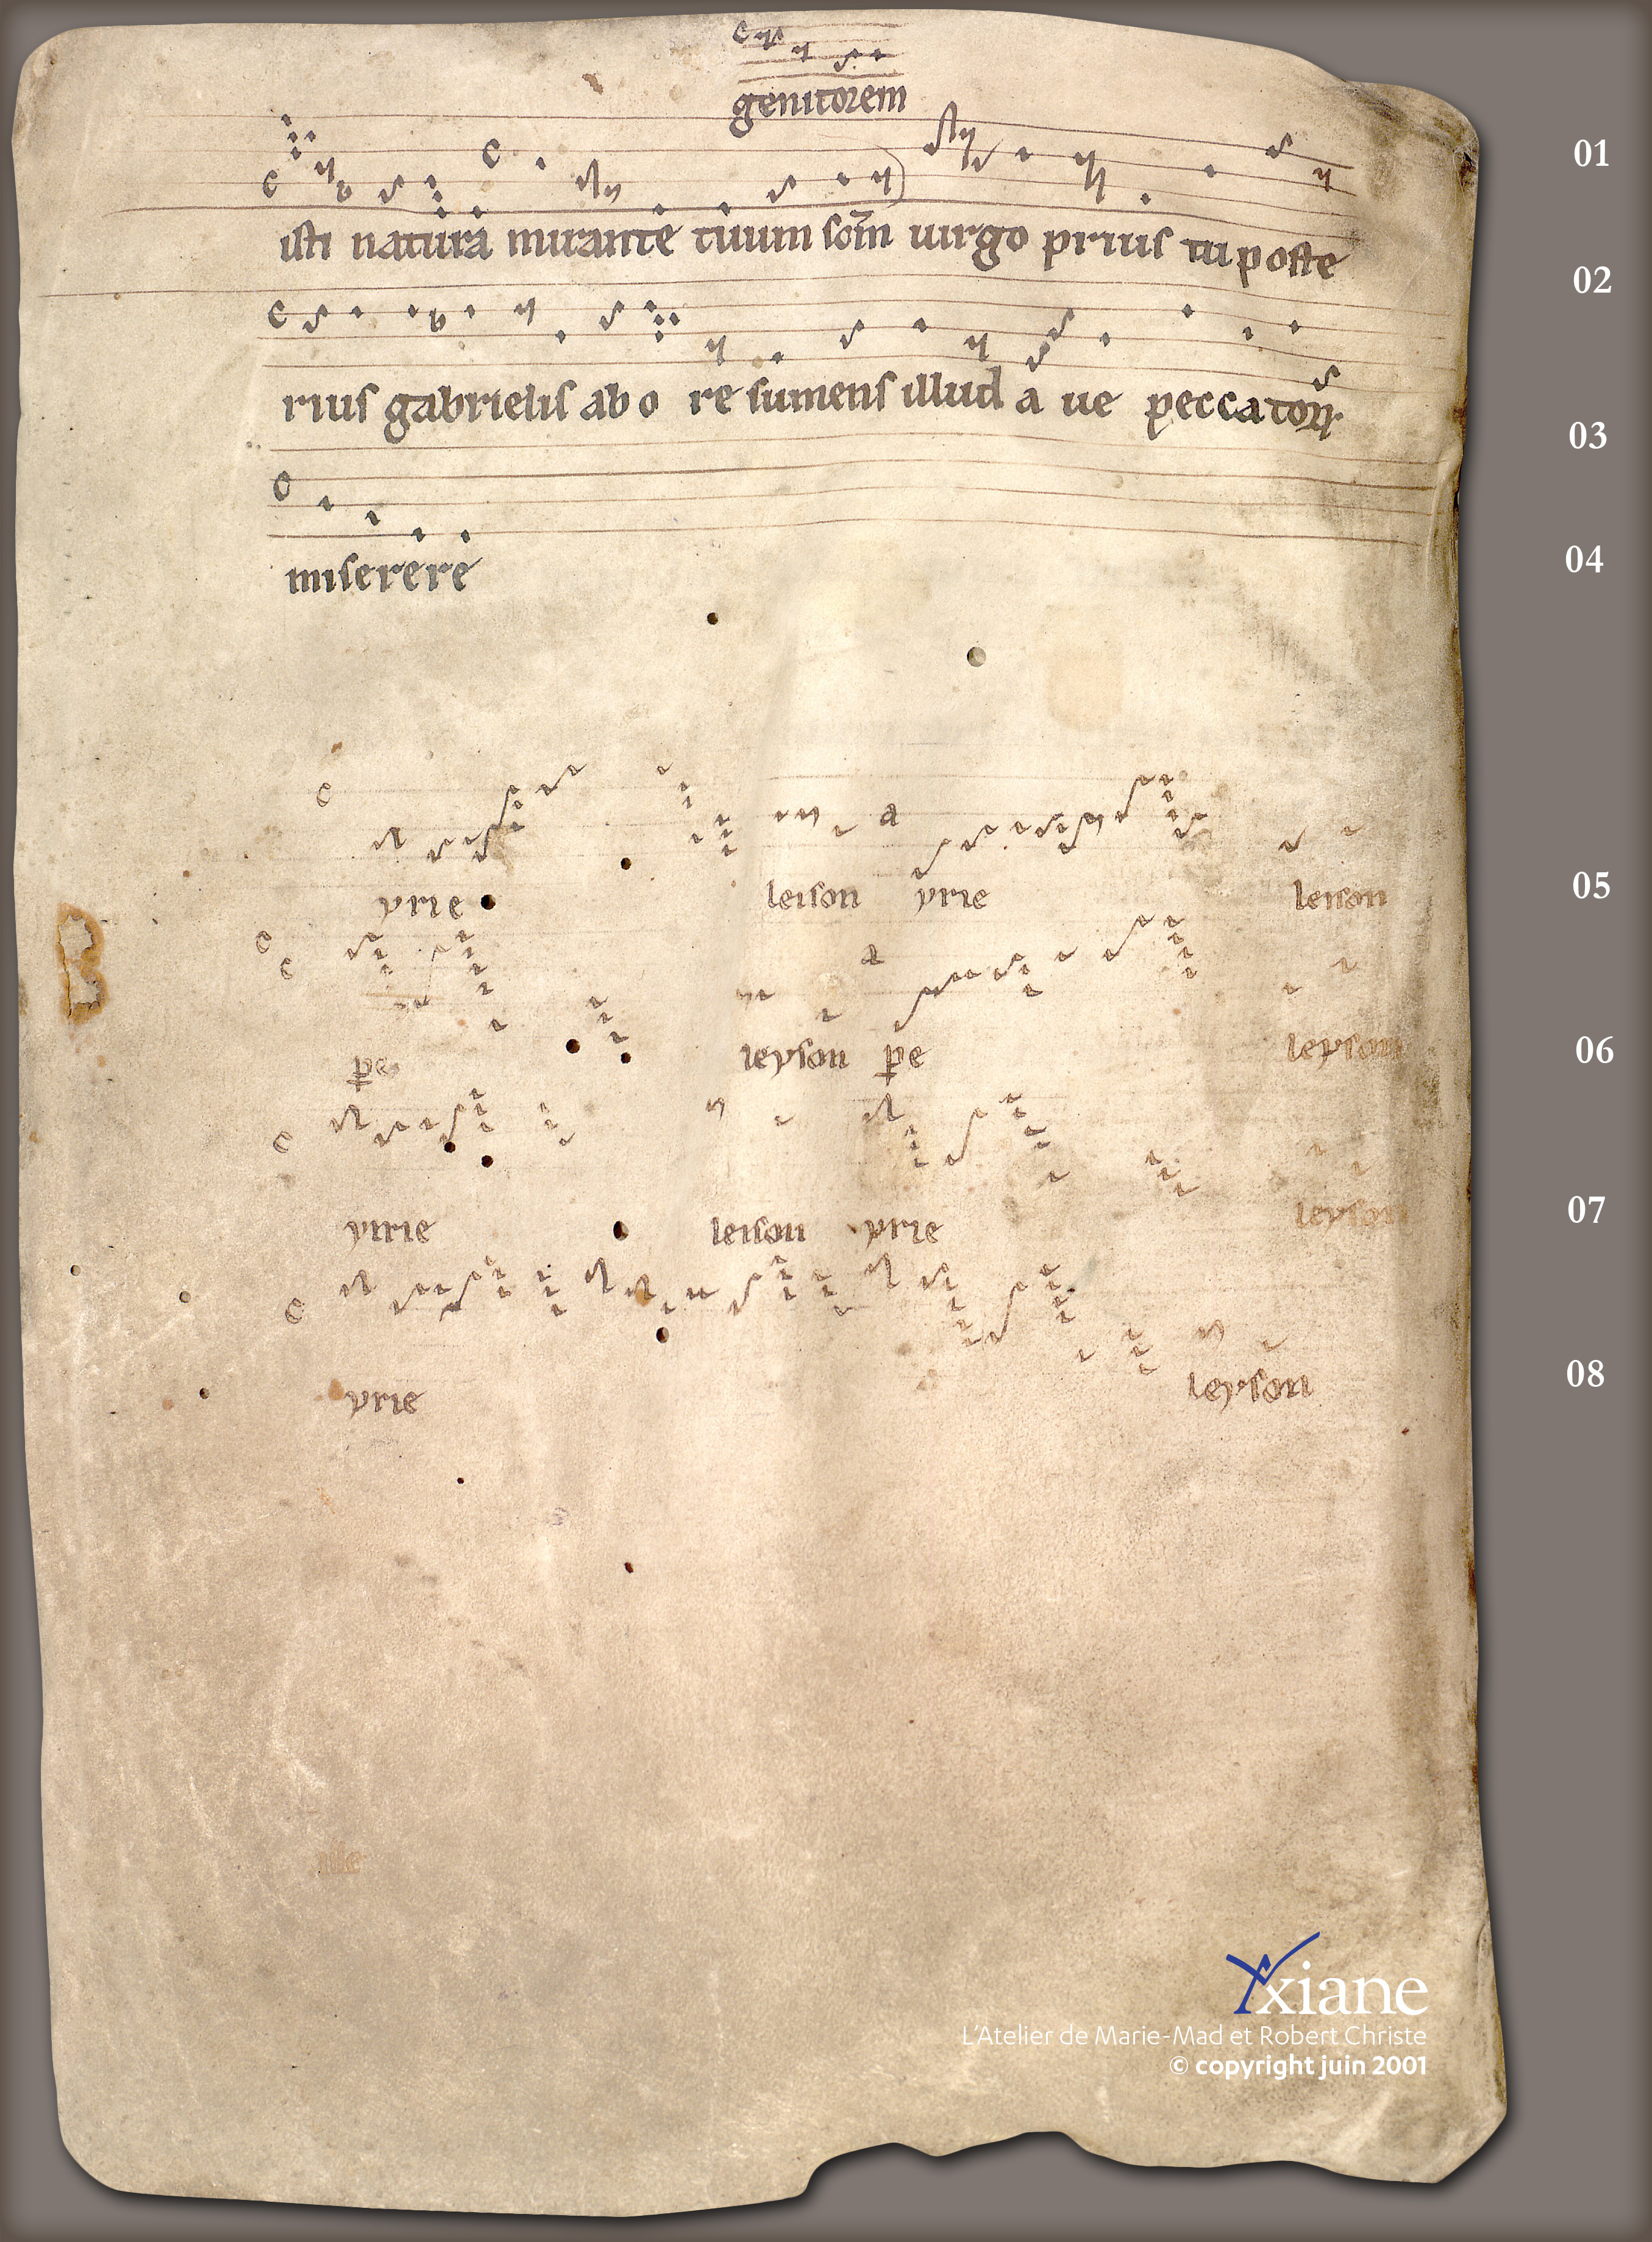 genitorem
01
isti natura mirante tuum scm̄ uirgo prius tu poste
02
rius gabrielis ab o re sumens illud a ue peccatoꝝ
03
miserere
04
yrie leison yrie leison
05
pe leyson pe leyson
06
yirie leison yrie leyson
07
yrie leyson
08
Axiane
L'Atelier de Marie-Mad et Robert Christe
© copyright juin 2001